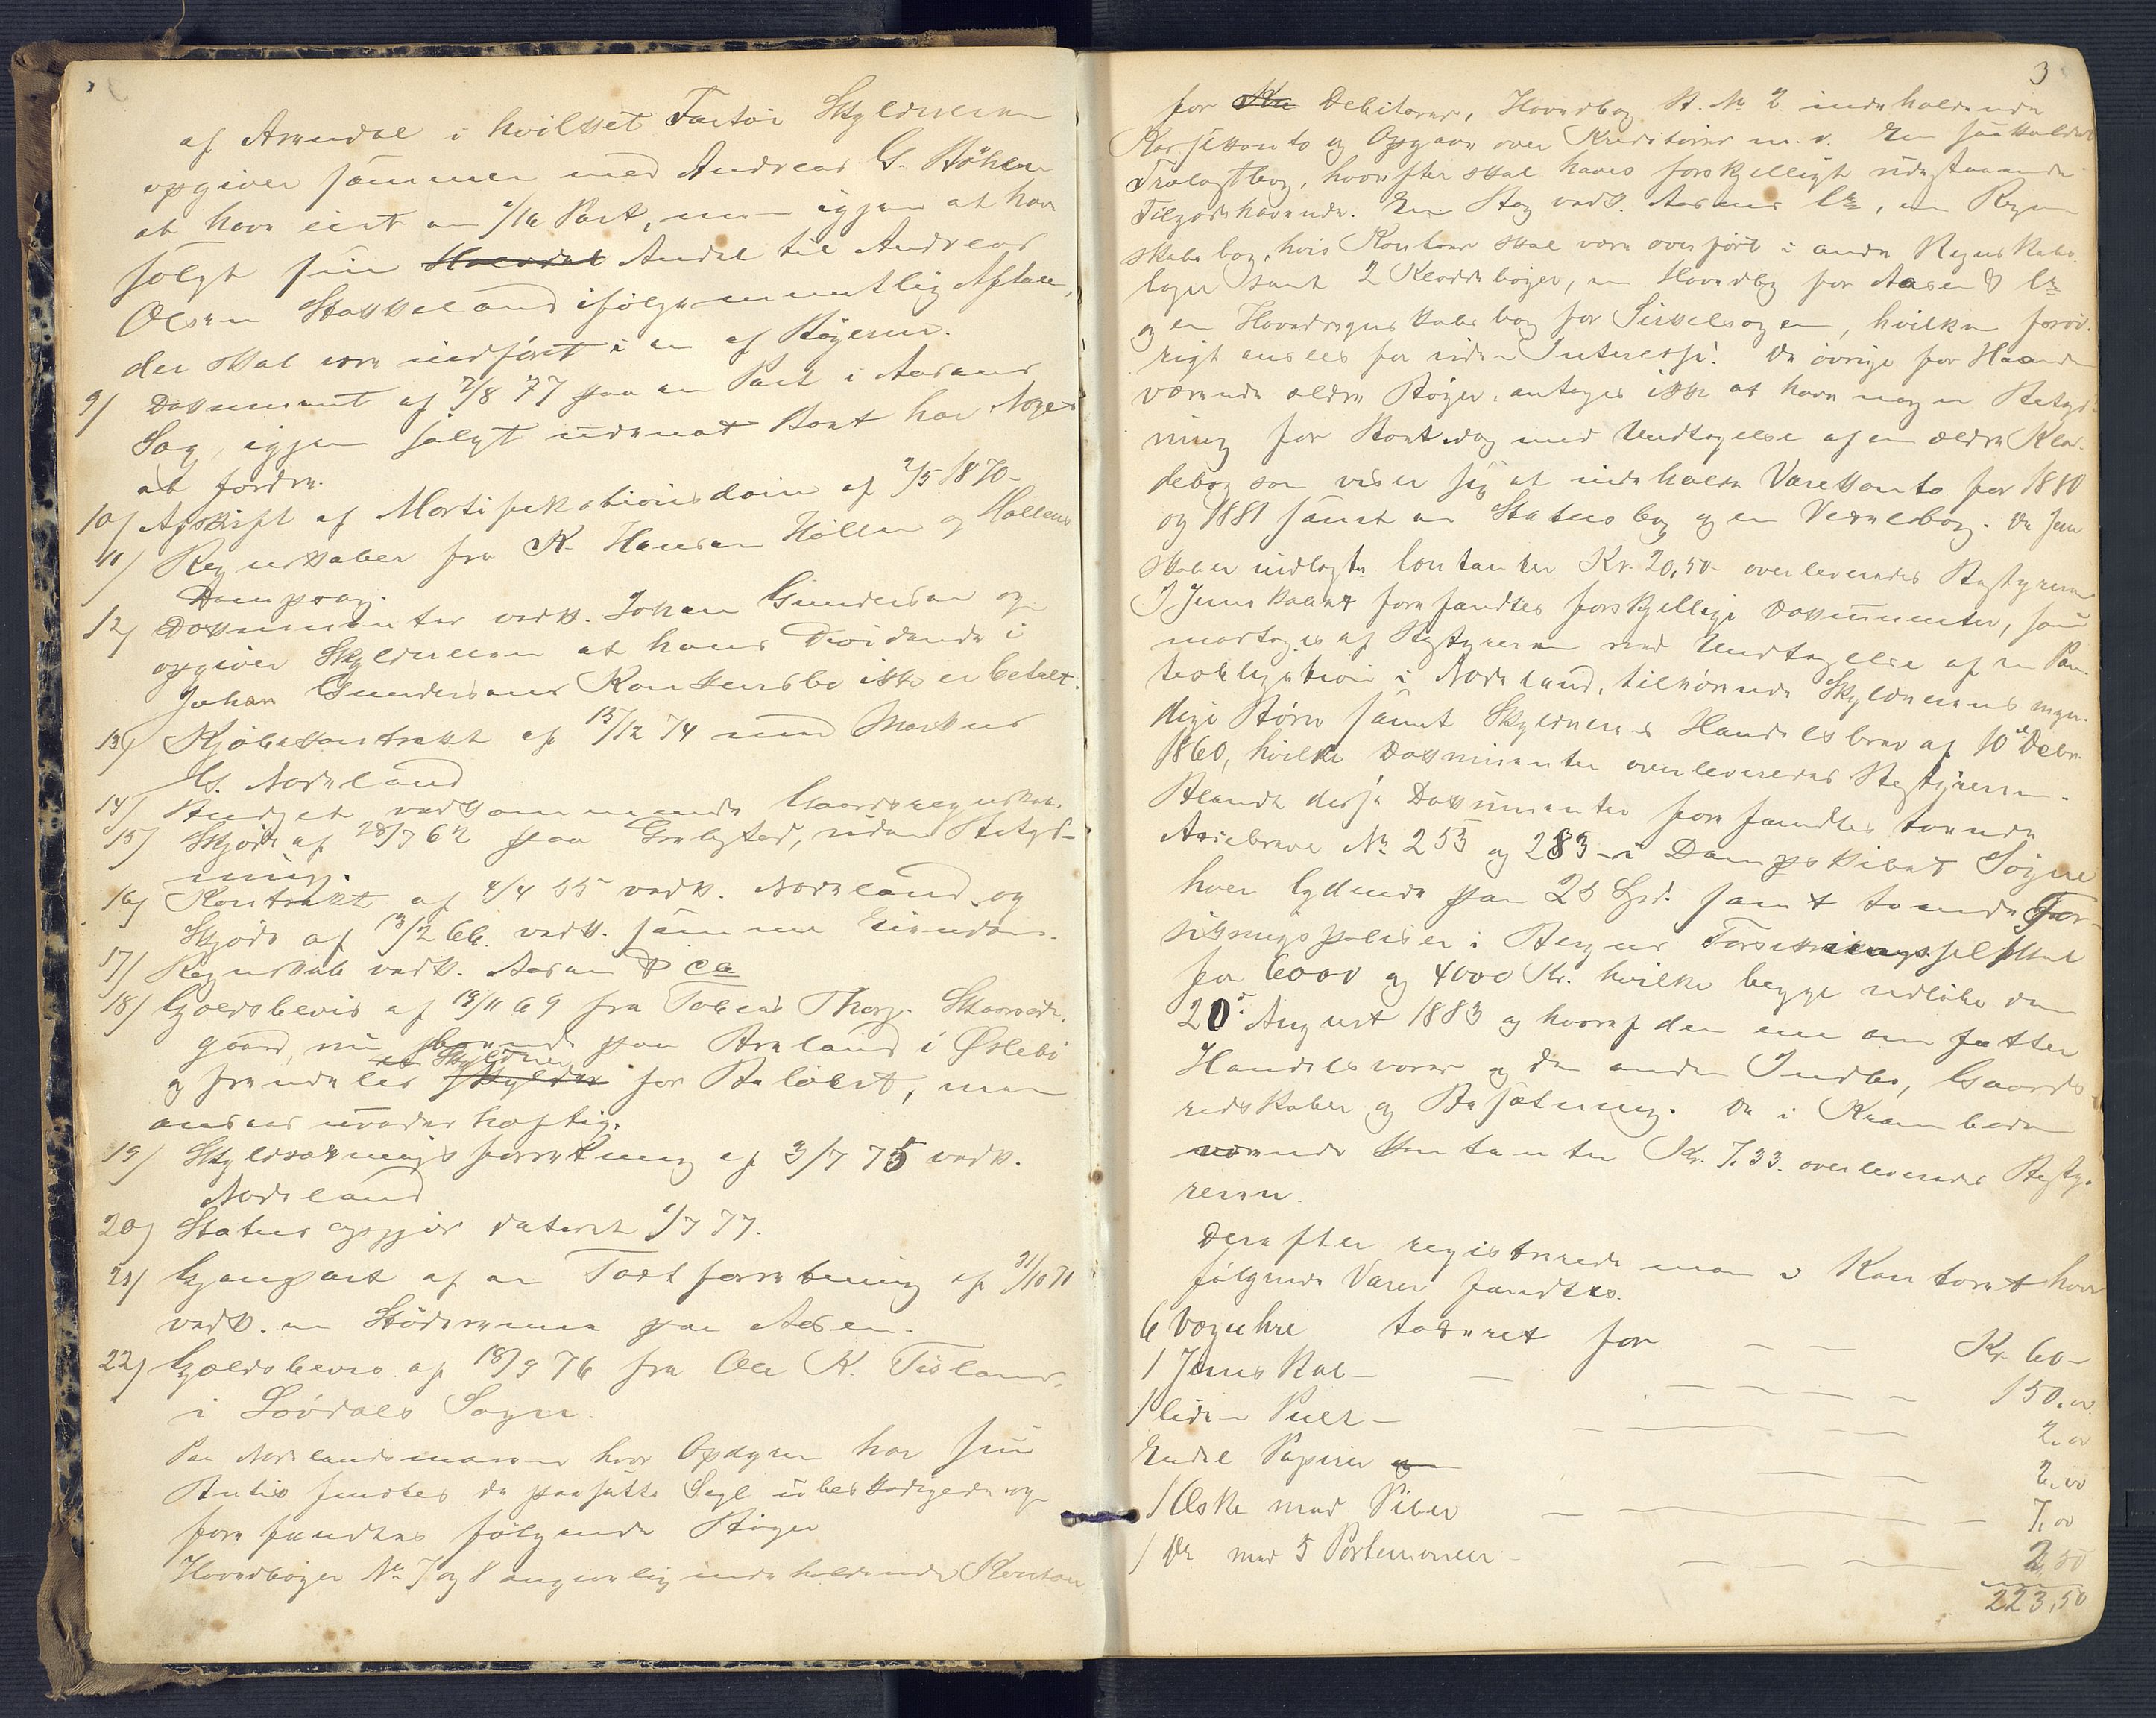 af Arendal i hvilket Fartøi Skyldneren
opgiver sammen med Andreas G. Bøhler
at have eiet en 1/16 Part, men igjen at have
solgt sin Halvdel Andel til Andreas
Olsen Stokkeland ifølge mundtlig Aftale,
der skal være indført i en af Bøgerne.
9/ Dokument af 2/8 77 paa en Part i Aasens
Sag, igjen solgt uden at Boet har Noget
at fordre.
10/ Afskrift af Mortifikationsdom af 2/5 1870
11/ Regnskaber fra K. Hansen Høllen og Høllens
Dampsag.
12/ Dokumenter vedk. Johan Gundersen og
opgiver Skyldneren at hans Dividende i
Johan Gundersens Konkursbo ikke er betalt.
13/ Kjøbekontrakt af 15/12 74 med Markus
G. Nodeland
14/ Budget vedkommende Gaardsregnskab.
15/ Skjøde af 28/7 62 paa Grebsted, uden Betyd-
ning.
16/ Kontrakt af 4/4 55 vedk. Nodeland og
Skjøde af 13/2 66 vedk. samme Eiendom.
17/ Regnskab vedk. Aasen & Co
18/ Gjældsbevis af 19/11 69 fra Tobias Thorg. Skarpode-
gaard, nu boende paa Araland i Øslebø
et Skyldner
og fremdeles skylder for Beløbet, men
ansees uvederhæftig.
19/ Skyldsætningsforretning af 3/7 75 vedk.
Nodeland
20/ Status opgjør dateret 1/7 77.
21/ Gjenpart af en Taxtforretning af 31/10 71
vedk. en Stødersmme paa Aasen.
22/ Gjældsbevis af 18/9 76 fra Ole K. Tisland,
i Løvdals Sogn.
Paa Nodelandsmoen hvor Opdageren har sin
Butik fandtes de paasatte Segl ubeskadigede og
forefandtes følgende Bøger
Hovedbøger No 7 og 8 angivelig indeholdende Kontoer
3
for Kre Debitorer, Hovedbog B. No 2 indeholdende
Kassekonto og Opgave over Kreditorer m. v. En saakaldet
Trælastbog, hvorefter skal haves forskjelligt udestaaende
Tilgodehavende. En Bog vedk. Aasens Co, en Regn-
skabsbog, hvis Kontoer skal være overført i andre Regnskabs-
bøger samt 2 Kladdebøger, en Hovedbog for Aasen & Co
og en Hovedregnskabsbog for Sirkelsagen, hvilken forøv-
rigt ansees for uden Interesse. De øvrige for Haanden
værende ældre Bøger antages ikke at have nogen Betyd-
ning for Boet dog med Undtagelse af en ældre Klad-
debog som viser sig at indeholde Varekonto for 1880
og 1881 samt en Statusbog og en Vexelbog. De Jern
skabet indlagte Contanter Kr. 20,50 overleveredes Bestyreren
I Jernskabet forefandtes forskjellige Dokumenter, som
modtoges af Bestyreren med Undtagelse af en Pan-
teobligation i Nodeland, tilhørende Skyldnerens myn-
dige Børn samt Skyldnerens Handelsbrev af 10de Decbr.
1860, hvilke Dokumenter overleveredes Bestyreren.
Blandt disse Dokumenter forefandtes tvende
Actiebreve No 253 og 283 i Dampskibet Søgne
hver lydende paa 25 Spd. samt tvende For-
sikringspoliser i Bergens Forsikringsselskab
for 6000 og 4000 Kr. hvilke begge udløbe den
20de August 1883 og hvoraf den ene omfatter
Handelsvarer og den anden Indbo, Gaards-
redskaber og Besætning. De i Krambodens
værende Kontanter Kr. 7.33. overleveredes Besty-
reren.
Derefter registrerede man i Kontoret hvor
følgende Varer fandtes.
6 Væguhre taxeret for — — Kr. 60 —
1 Jernskab — 150.00
1 liden Pult — 2.00
Endel Papirer og — 2.00
1 Æske med Piber — 7.00
1 Do med 5 Portemonæer — 2,50
223,50